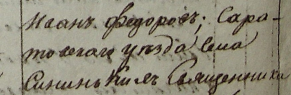 Иванъ Федоровъ. Сара-
товскаго уѣзда, села
Сининькихъ Священника